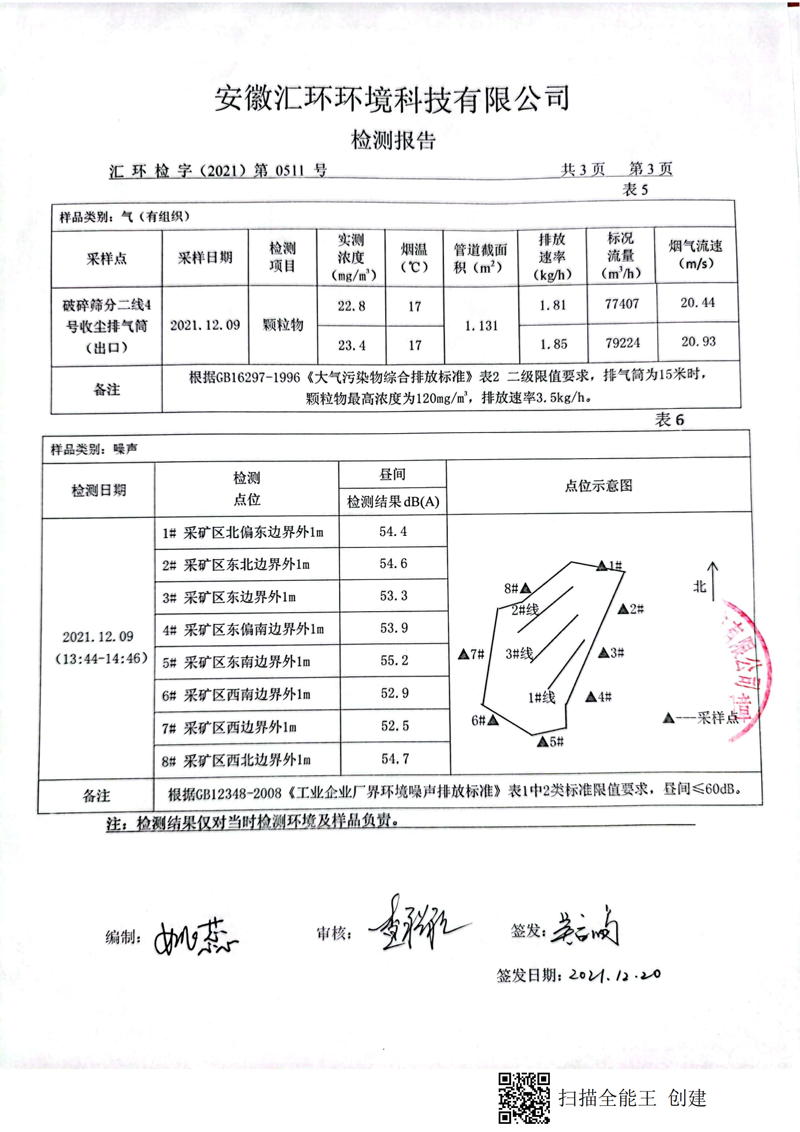 安徽汇环环境科技有限公司
检测报告
汇 环 检 字（2021）第 0511 号 共 3 页 第 3 页
表 5
样品类别：气（有组织）
采样点 采样日期 检测项目 实测浓度（mg/m³） 烟温（℃） 管道截面积（m²） 排放速率（kg/h） 标况流量（m³/h） 烟气流速（m/s）
破碎筛分二线4号收尘排气筒（出口） 2021.12.09 颗粒物 22.8 17 1.131 1.81 77407 20.44
23.4 17 1.85 79224 20.93
备注 根据GB16297-1996《大气污染物综合排放标准》表2 二级限值要求，排气筒为15米时，
颗粒物最高浓度为120mg/m³，排放速率3.5kg/h。
表 6
样品类别：噪声
检测日期 检测点位 昼间 点位示意图
检测结果 dB(A)
2021.12.09
（13:44-14:46）
1# 采矿区北偏东边界外1m 54.4
2# 采矿区东北边界外1m 54.6
3# 采矿区东边界外1m 53.3
4# 采矿区东偏南边界外1m 53.9
5# 采矿区东南边界外1m 55.2
6# 采矿区西南边界外1m 52.9
7# 采矿区西边界外1m 52.5
8# 采矿区西北边界外1m 54.7
▲1#
8#▲
北
2#线
▲2#
▲7#
3#线
▲3#
1#线
▲4#
6#▲
▲---采样点
▲5#
有限公司
备注 根据GB12348-2008《工业企业厂界环境噪声排放标准》表1中2类标准限值要求，昼间≤60dB。
注：检测结果仅对当时检测环境及样品负责。
编制： 审核： 签发：
签发日期：2021.12.20
扫描全能王 创建